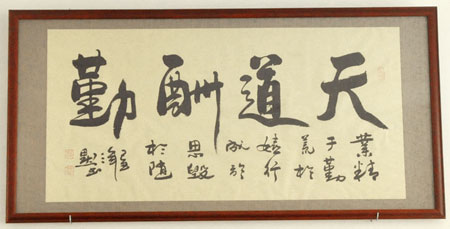 天道酬勤
業精
于勤
荒於
嬉行
成於
思毀
於随